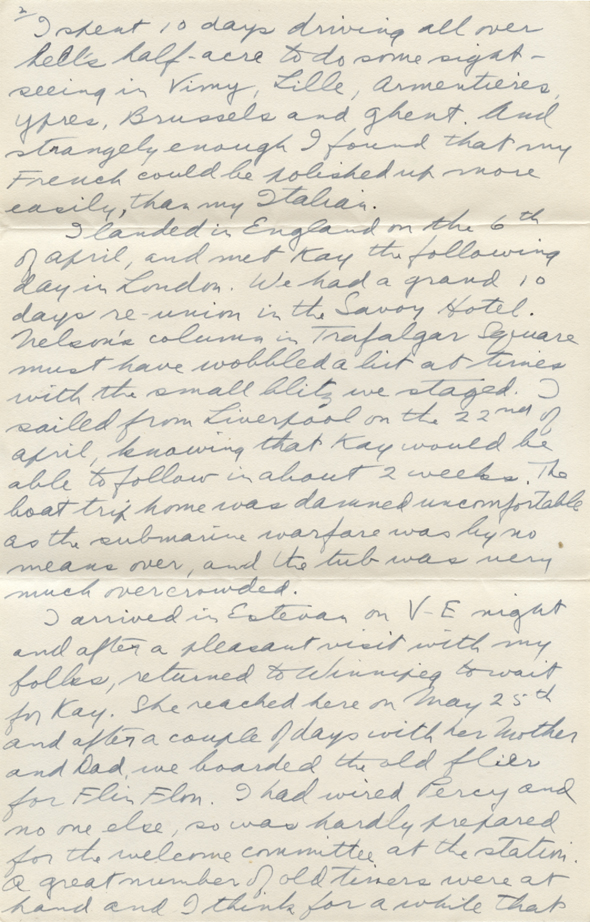 2
I spent 10 days driving all over
hell's half-acre to do some sight-
seeing in Vimy, Lille, Armentieres,
Ypres, Brussels and Ghent. And
strangely enough I found that my
French could be polished up more
easily, than my Italian.
I landed in England on the 6th
of April, and met Kay the following
day in London. We had a grand 10
days re-union in the Savoy Hotel.
Nelson's column in Trafalgar Square
must have wobbled a bit at times
with the small blitz we staged. I
sailed from Liverpool on the 22nd of
April, knowing that Kay would be
able to follow in about 2 weeks. The
boat trip home was damned uncomfortable
as the submarine warfare was by no
means over, and the tub was very
much overcrowded.
I arrived in Estevan on V-E night
and after a pleasant visit with my
folks, returned to Winnipeg to wait
for Kay. She reached here on May 25th
and after a couple of days with her Mother
and Dad, we boarded the old flier
for Flin Flon. I had wired Percy and
no one else, so was hardly prepared
for the welcome committee at the station.
A great number of old timers were at
hand and I think for a while that